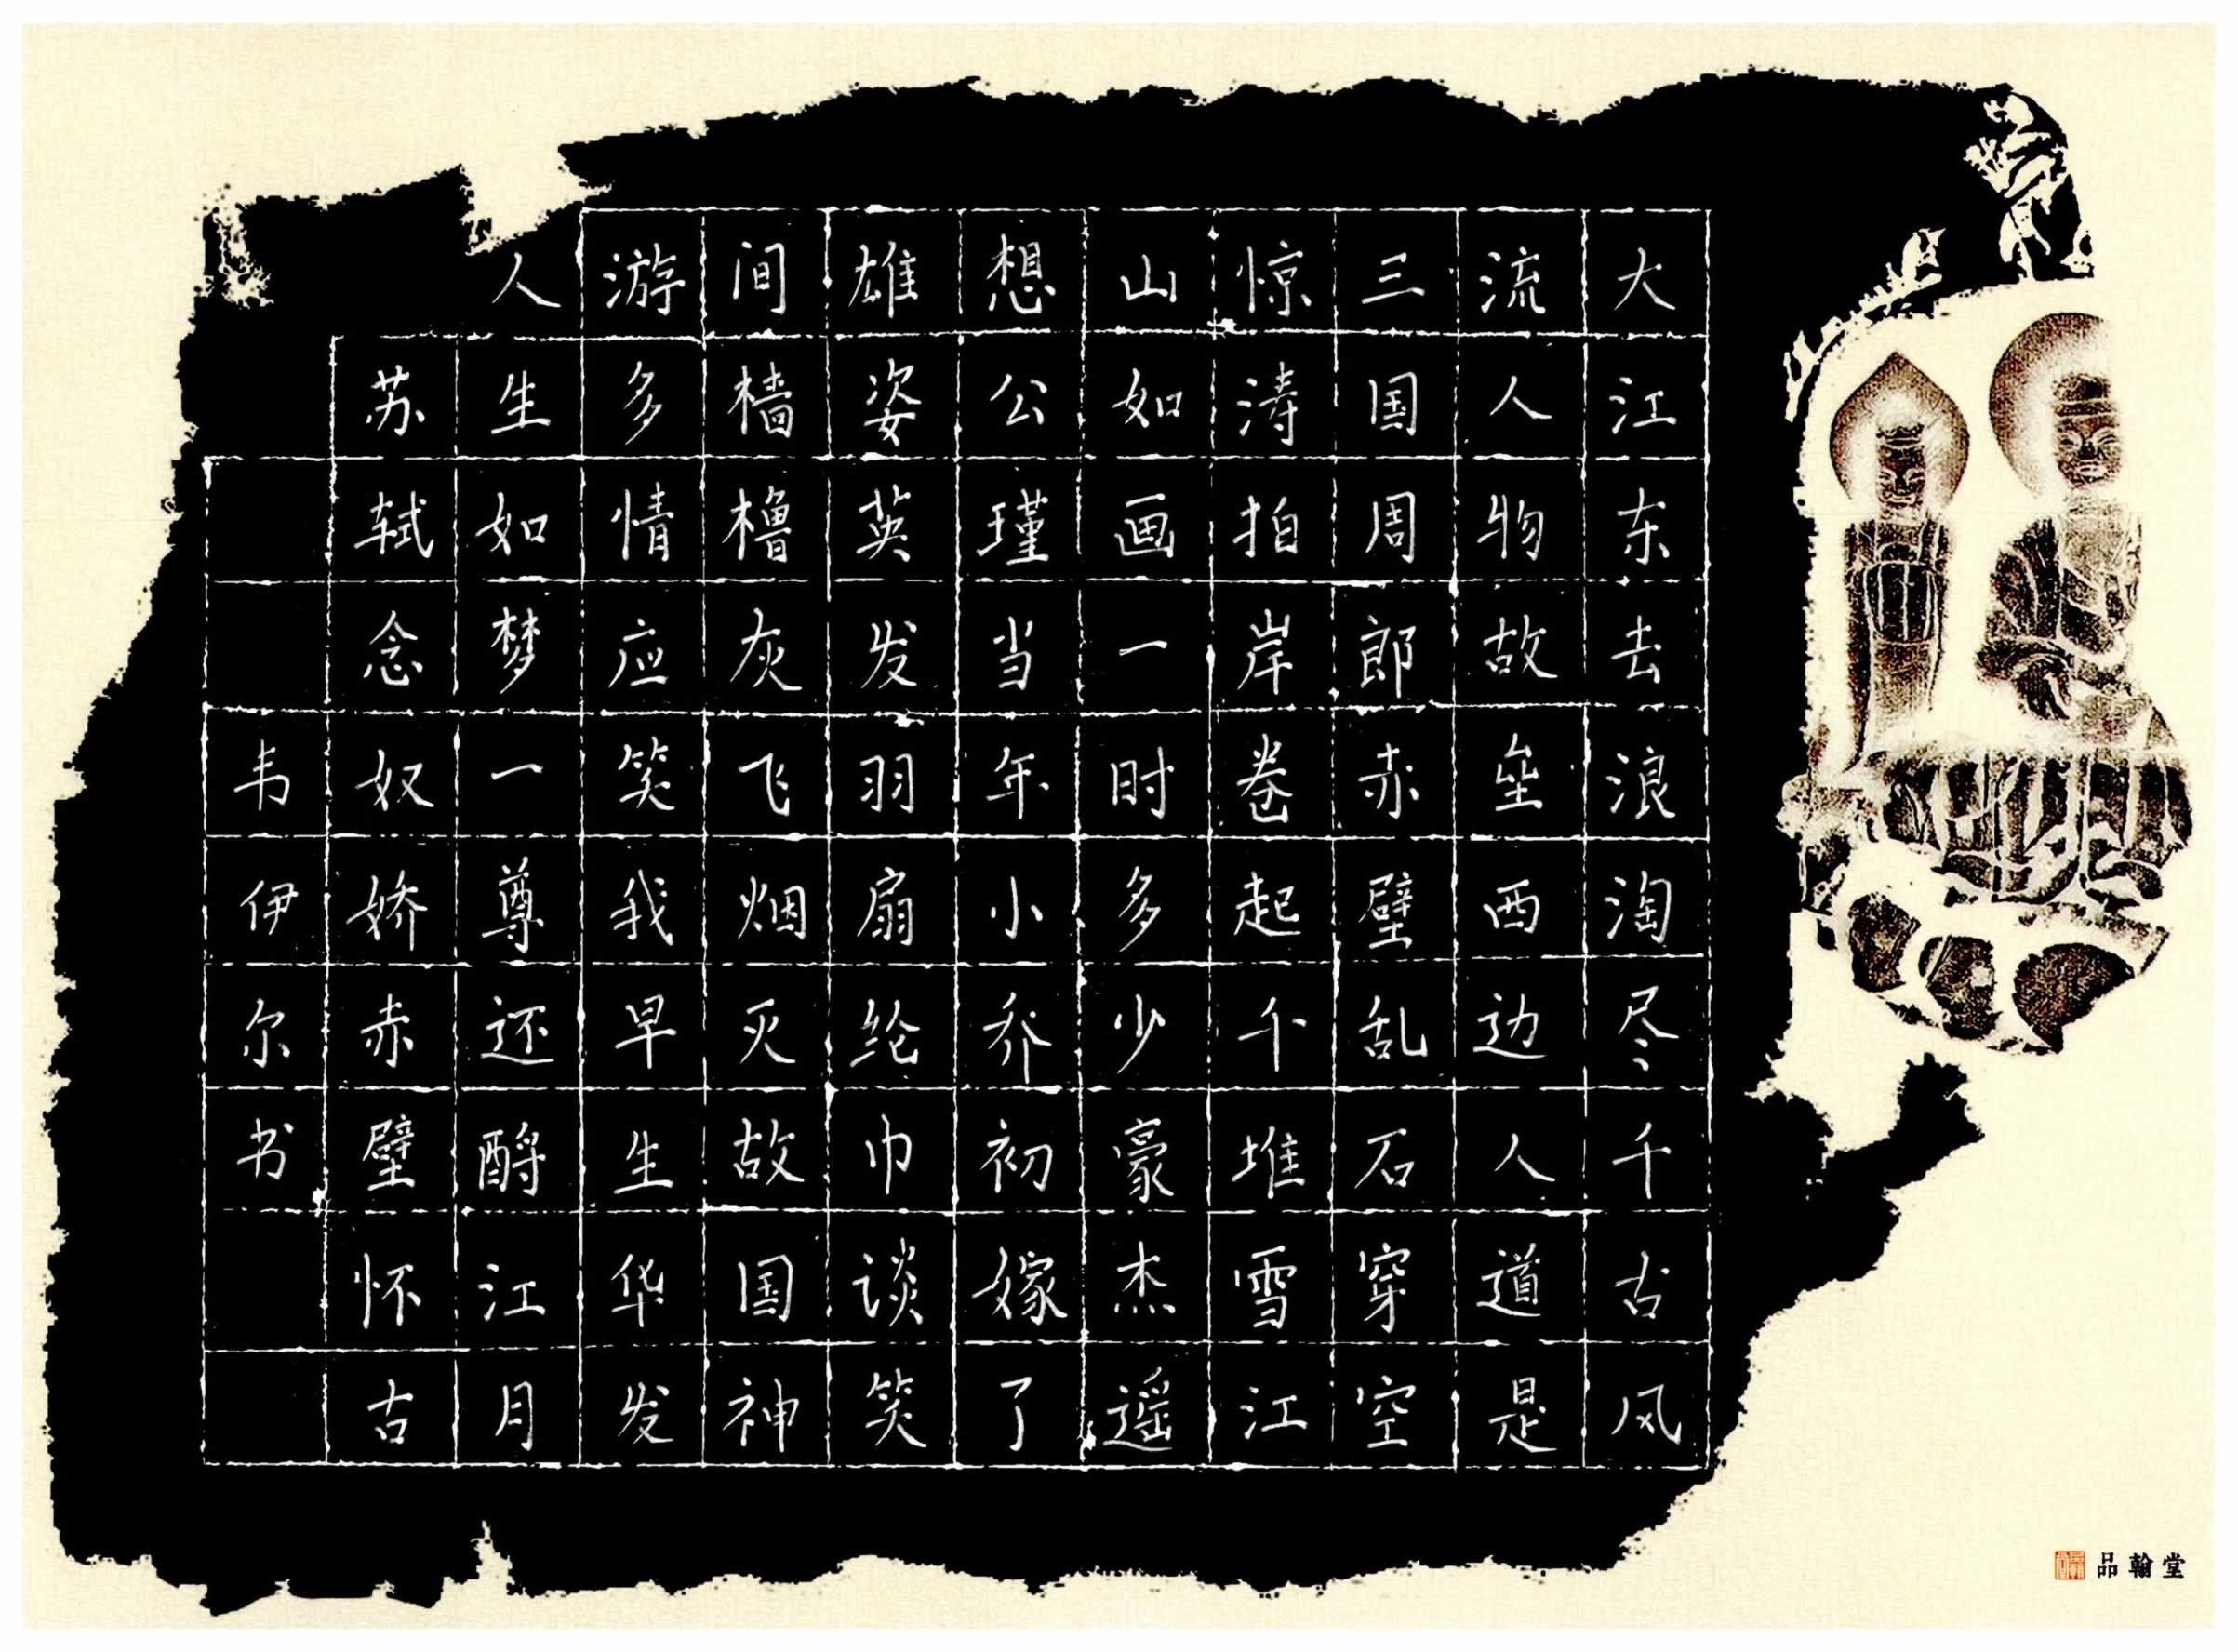 大江东去浪淘尽千古风
流人物故垒西边人道是
三国周郎赤壁乱石穿空
惊涛拍岸卷起千堆雪江
山如画一时多少豪杰遥
想公瑾当年小乔初嫁了
雄姿英发羽扇纶巾谈笑
间樯橹灰飞烟灭故国神
游多情应笑我早生华发
人生如梦一尊还酹江月
苏轼念奴娇赤壁怀古
韦伊尔书
品翰堂